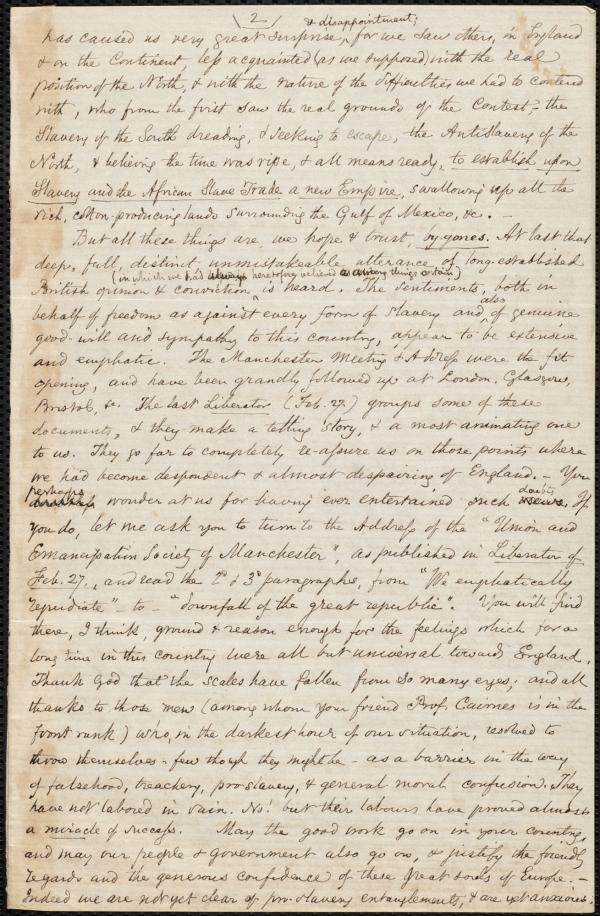 \ 2 /
& disappointment;
has caused us very great surprise, for we saw others, in England
& on the Continent, less acquainted (as we supposed) with the real
position of the North, & with the nature of the difficulties we had to contend
with, who from the first saw the real grounds of the Contest, – the
Slavery of the South dreading, & seeking to escape, the Antislavery of the
North, & believing the time was ripe, & all means ready, to establish upon
Slavery and the African Slave Trade a new Empire, swallowing up all the
rich, cotton-producing lands surrounding the Gulf of Mexico, &c. –
But all these things are, we hope & trust, by-gones. At last that
deep, full, distinct, unmistakeable utterance of long-established
(in which we had always heretofore believed as among things certain)
British opinion & conviction is heard. The sentiments, both in
behalf of freedom as against every form of Slavery and also of genuine
good-will and sympathy to this country, appear to be extensive
and emphatic. The Manchester Meeting & Address were the fit
opening, and have been grandly followed up at London, Glasgow,
Bristol, &c. The last Liberator (Feb. 27.) groups some of these
documents, & they make a telling story, & a most animating one
to us. They go far to completely re-assure us on those points where
we had become despondent & almost despairing of England. – You
perhaps wonder at us for having ever entertained such doubts. If
you do, let me ask you to turn to the Address of the "Union and
Emancipation Society of Manchester", as published in Liberator of
Feb. 27., and read the 2d & 3d paragraphs, from "We emphatically
repudiate" – to – "downfall of the great republic". You will find
there, I think, ground & reason enough for the feelings which for a
long time in this country were all but universal towards England.
Thank God that the scales have fallen from so many eyes; and all
thanks to those men (among whom your friend Prof. Cairnes is in the
front rank) who, in the darkest hour of our situation, resolved to
throw themselves – few though they might be – as a barrier in the way
of falsehood, treachery, pro-slavery, & general moral confusion. They
have not labored in vain. No! but their labours have proved almost
a miracle of success. May the good work go on in your country,
and may our people & government also go on, & justify the friendly
regards and the generous confidence of these great souls of Europe. –
Indeed we are not yet clear of pro-slavery entanglements, & are yet anxious.